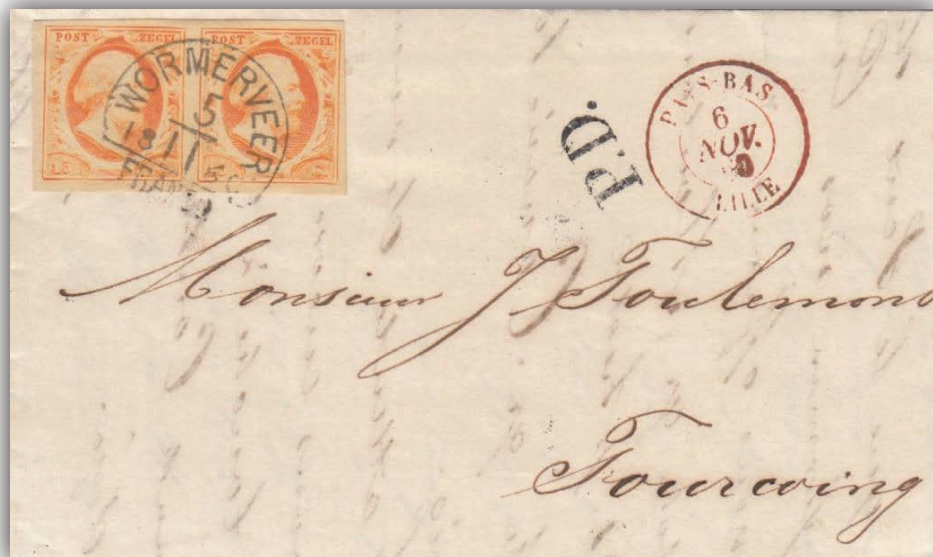 POST ZEGEL POST ZEGEL
WORMERVEER
5
18 11
FRANCO
P.D.
PAYS-BAS
6
NOV.
LILLE
Monsieur J Toulemond
Tourcoing